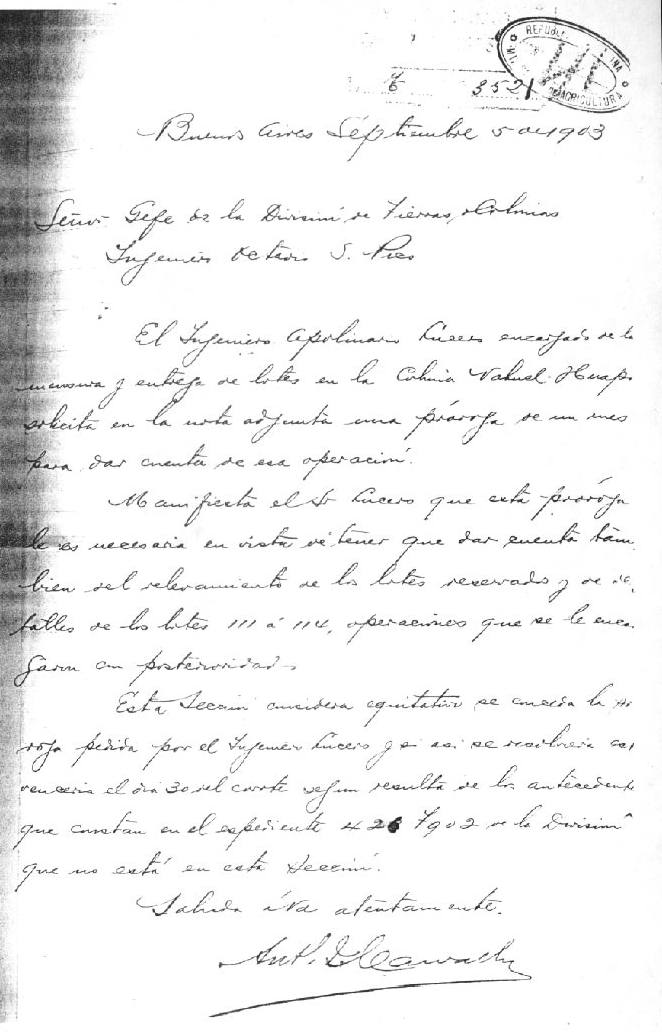 REPUBLICA ARGENTINA
AGRICULTURA
3521
Buenos Aires Septiembre 5 de 1903
Señor Gefe de la División de Tierras y Colonias
Ingeniero Octavio S. Pico
El Ingeniero Apolinario Lucero encargado de la
mensura y entrega de lotes en la Colonia Nahuel-Huapi
solicita en la nota adjunta una próroga de un mes
para dar cuenta de esa operación.
Manifiesta el Sr Lucero que esta próroga
le es necesaria en vista de tener que dar cuenta tam
bien del relevamiento de los lotes reservados y de de
talles de los lotes 111 á 114, operaciones que se le enca
garon con posterioridad.
Esta Sección considera equitativo se conceda la pro
roga pedida por el Ingeniero Lucero y si asi se resolviera
venceria el dia 30 del corrte segun resulta de los antecedente
que constan en el espediente 426 1902 de la División
que no está en esta Sección.
Saluda á Vd atentamente.